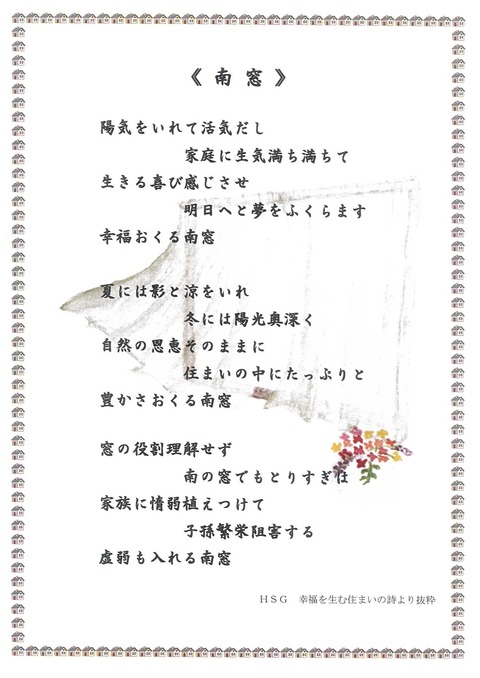 《南窓》
陽気をいれて活気だし
家庭に生気満ち満ちて
生きる喜び感じさせ
明日へと夢をふくらます
幸福おくる南窓
夏には影と涼をいれ
冬には陽光奥深く
自然の恩恵そのままに
住まいの中にたっぷりと
豊かさおくる南窓
窓の役割理解せず
南の窓でもとりすぎは
家族に惰弱植えつけて
子孫繁栄阻害する
虚弱も入れる南窓
HSG 幸福を生む住まいの詩より抜粋